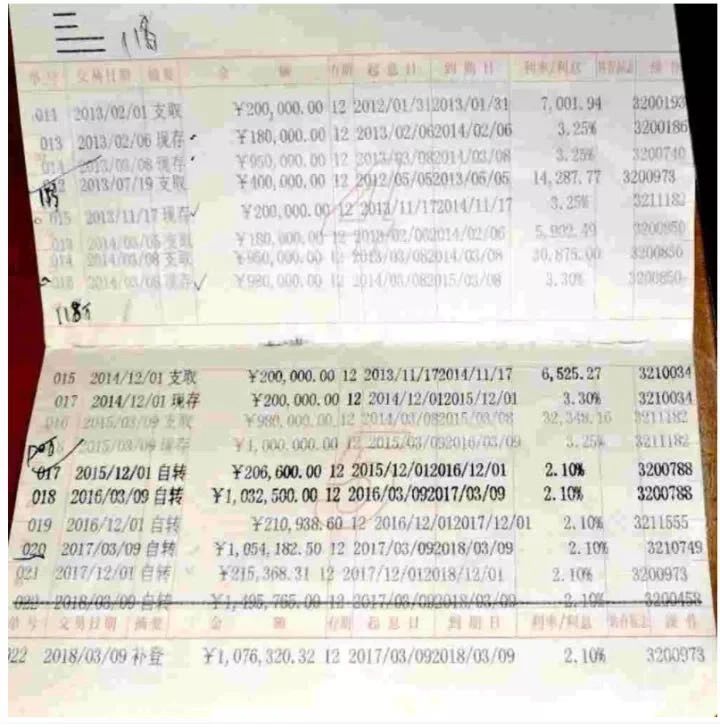 118
单号 交易日期 摘要 金 额 存期 起息日 到期日 利率/利息 操作
011 2013/02/01 支取 ¥200,000.00 12 2012/01/31 2013/01/31 7,001.94 3200193
013 2013/02/06 现存 ¥180,000.00 12 2013/02/06 2014/02/06 3.25% 3200186
014 2013/03/08 现存 ¥950,000.00 12 2013/03/08 2014/03/08 3.25% 3200740
2013/07/19 支取 ¥400,000.00 12 2012/05/05 2013/05/05 14,287.77 3200973
015 2013/11/17 现存 ¥200,000.00 12 2013/11/17 2014/11/17 3.25% 3211182
013 2014/03/08 支取 ¥180,000.00 12 2013/02/06 2014/02/06 3200850
014 2014/03/08 支取 ¥950,000.00 12 2013/03/08 2014/03/08 30,875.00 3200850
016 2014/03/08 现存 ¥980,000.00 12 2014/03/08 2015/03/08 3.30% 3200850
118万
015 2014/12/01 支取 ¥200,000.00 12 2013/11/17 2014/11/17 6,525.27 3210034
017 2014/12/01 现存 ¥200,000.00 12 2014/12/01 2015/12/01 3.30% 3210034
016 2015/03/09 支取 ¥980,000.00 12 2014/03/08 2015/03/08 32,348.16 3211182
2015/03/09 现存 ¥1,000,000.00 12 2015/03/09 2016/03/09 3.25% 3211182
017 2015/12/01 自转 ¥206,600.00 12 2015/12/01 2016/12/01 2.10% 3200788
018 2016/03/09 自转 ¥1,032,500.00 12 2016/03/09 2017/03/09 2.10% 3200788
019 2016/12/01 自转 ¥210,938.60 12 2016/12/01 2017/12/01 2.10% 3211555
020 2017/03/09 自转 ¥1,054,182.50 12 2017/03/09 2018/03/09 2.10% 3210749
021 2017/12/01 自转 ¥215,368.31 12 2017/12/01 2018/12/01 2.10% 3200973
022 2018/03/09 自转 ¥1,195,765.00 12 2017/03/09 2018/03/09 2.10% 3200458
单号 交易日期 摘要 金 额 存期 起息日 到期日 利率/利息 操作
022 2018/03/09 补登 ¥1,076,320.32 12 2017/03/09 2018/03/09 2.10% 3200973